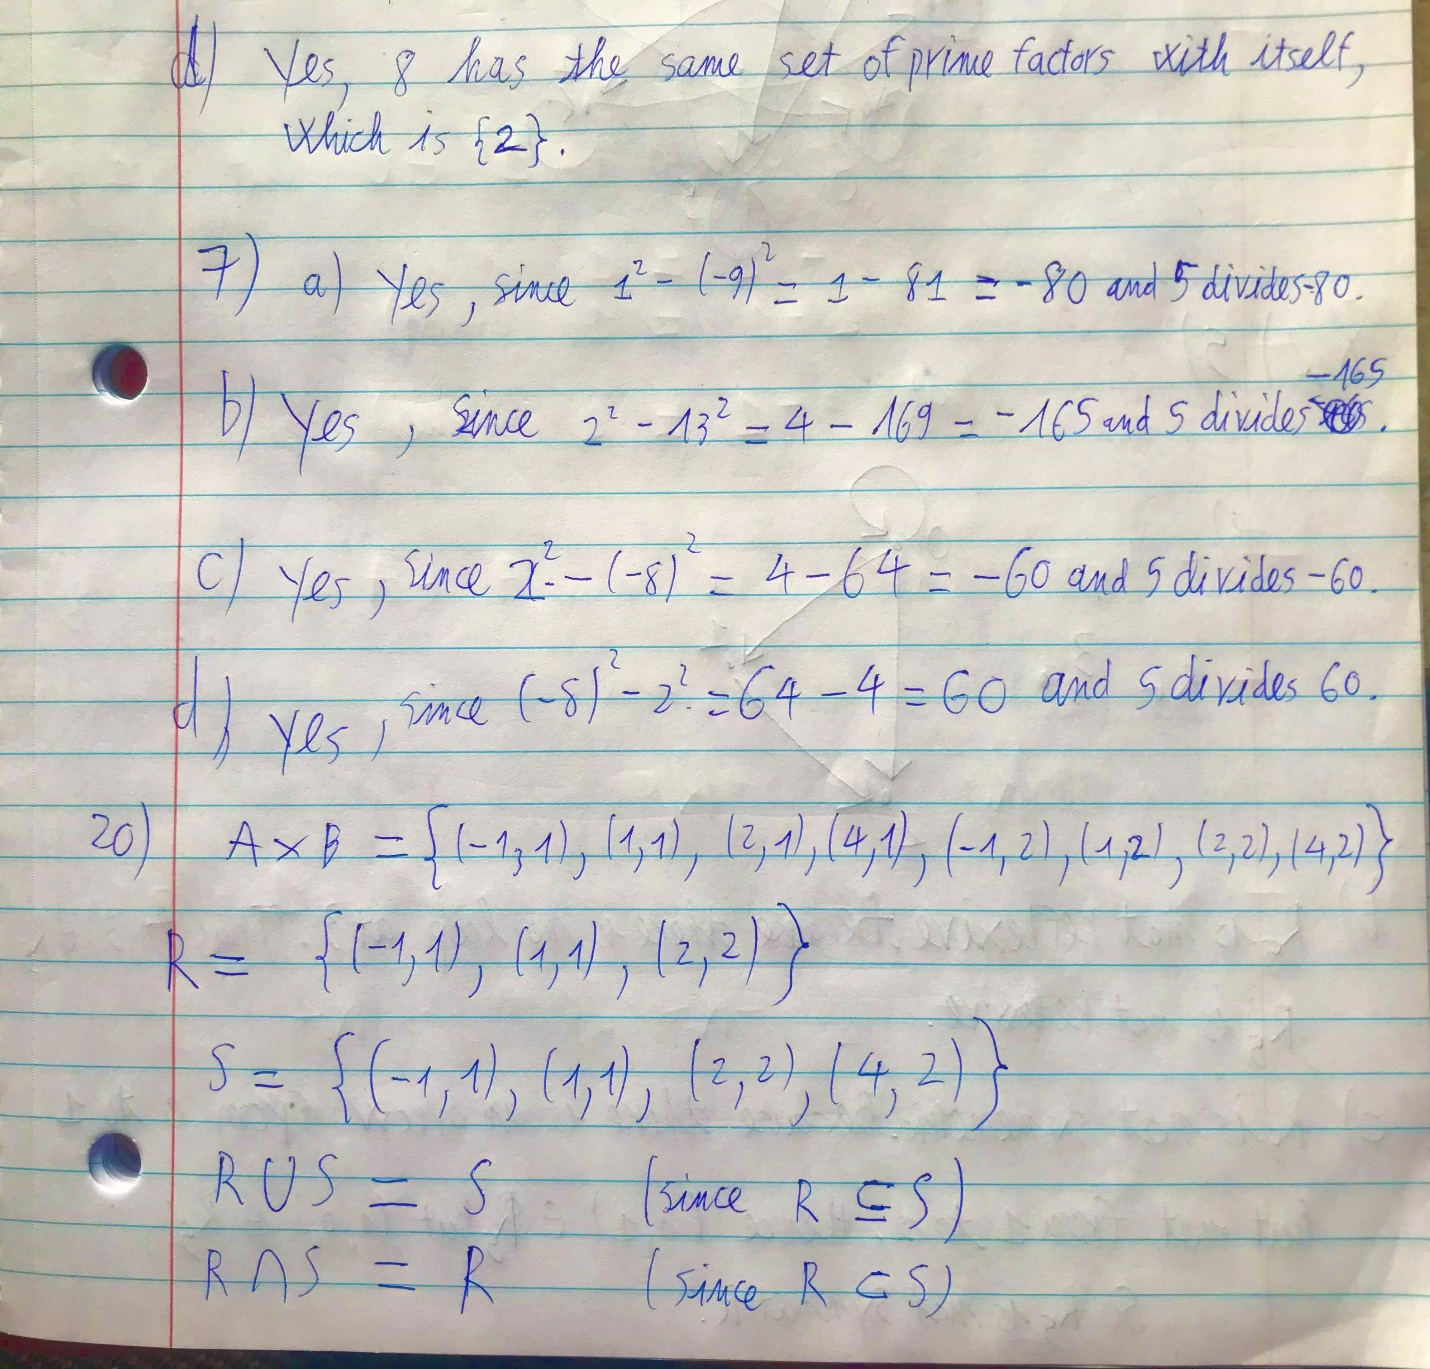 d) Yes, 8 has the same set of prime factors with itself,
which is {2}.
7) a) Yes, since 1² - (-9)² = 1 - 81 = -80 and 5 divides -80.
b) Yes, since 2² - 13² = 4 - 169 = -165 and 5 divides -165.
c) Yes, since 2² - (-8)² = 4 - 64 = -60 and 5 divides -60.
d) Yes, since (-8)² - 2² = 64 - 4 = 60 and 5 divides 60.
20) A × B = {(-1,1), (1,1), (2,1), (4,1), (-1,2), (1,2), (2,2), (4,2)}
R = {(-1,1), (1,1), (2,2)}
S = {(-1,1), (1,1), (2,2), (4,2)}
R ∪ S = S (since R ⊆ S)
R ∩ S = R (since R ⊂ S)